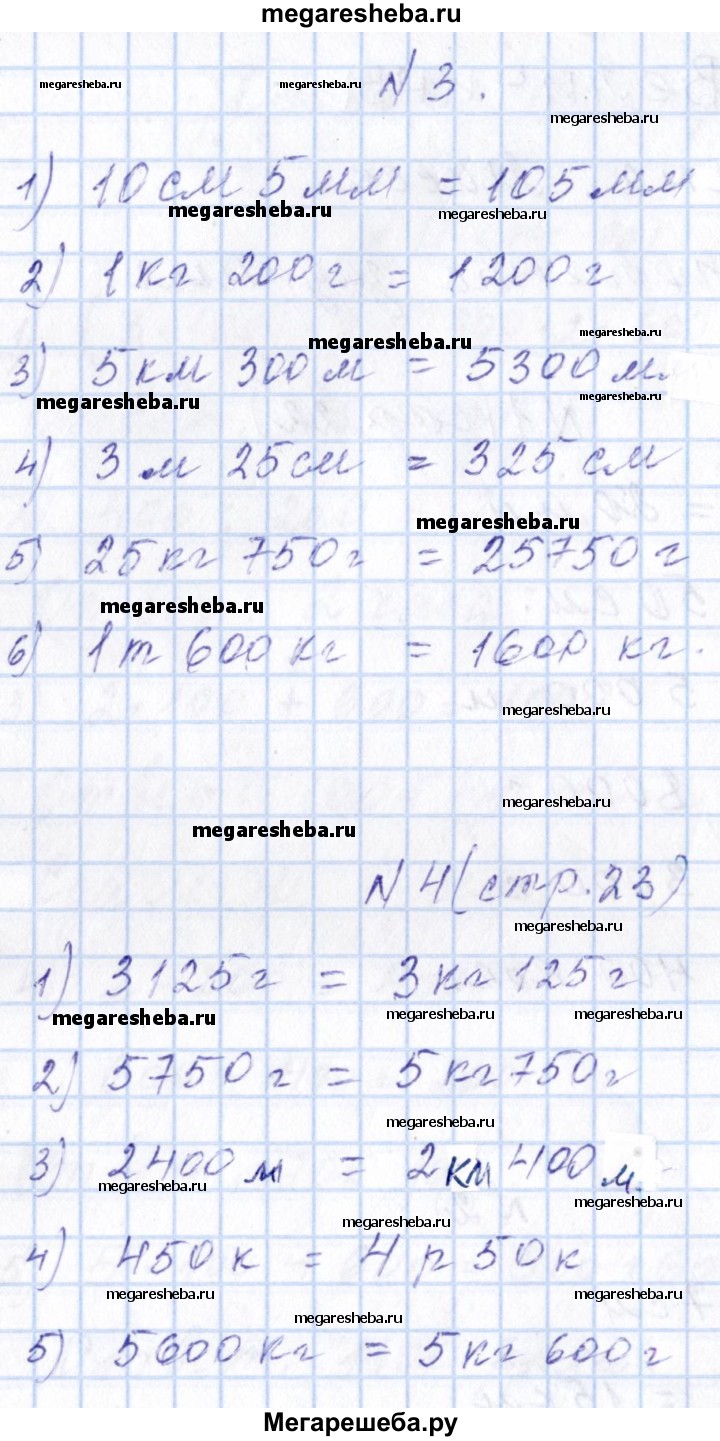 megaresheba.ru
megaresheba.ru megaresheba.ru № 3.
megaresheba.ru
1) 10 см 5 мм = 105 мм
megaresheba.ru megaresheba.ru
2) 1 кг 200 г = 1200 г
megaresheba.ru
megaresheba.ru
3) 5 км 300 м = 5300 м.
megaresheba.ru megaresheba.ru
4) 3 м 25 см = 325 см
megaresheba.ru
5) 25 кг 750 г = 25750 г
megaresheba.ru
6) 1 т 600 кг = 1600 кг.
megaresheba.ru
megaresheba.ru
megaresheba.ru
№ 4 (стр. 23)
megaresheba.ru
1) 3125 г = 3 кг 125 г
megaresheba.ru megaresheba.ru megaresheba.ru
2) 5750 г = 5 кг 750 г
megaresheba.ru
3) 2400 м = 2 км 400 м.
megaresheba.ru megaresheba.ru
megaresheba.ru
4) 450 к = 4 р 50 к
megaresheba.ru megaresheba.ru
megaresheba.ru
5) 5600 кг = 5 кг 600 г
Мегарешеба.ру